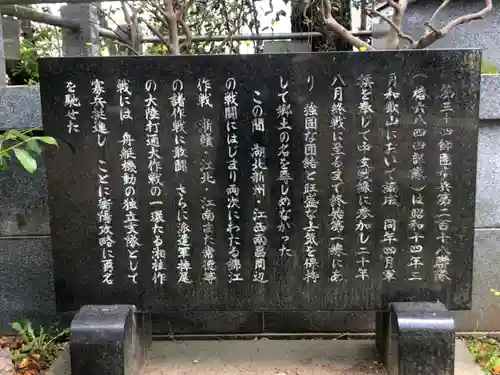 第三十四師団歩兵第二百十八聯隊
(椿六八四四部隊)は昭和十四年三
月和歌山において編成 同年四月軍
旗を奉じて中支戦線に参加し二十年
八月終戦に至るまで終始第一線にあ
り 強固な団結と旺盛な士気を保持
して郷土の名を辱しめなかった
この間 湖北新州・江西南昌周辺
の戦闘にはじまり両次にわたる錦江
作戦 浙贛・江北・江南また常徳等
の諸作戦に敢闘 さらに派遣軍掉尾
の大陸打通大作戦の一環たる湘桂作
戦には 舟艇機動の独立支隊として
寡兵挺進し ことに衡陽攻略に勇名
を馳せた